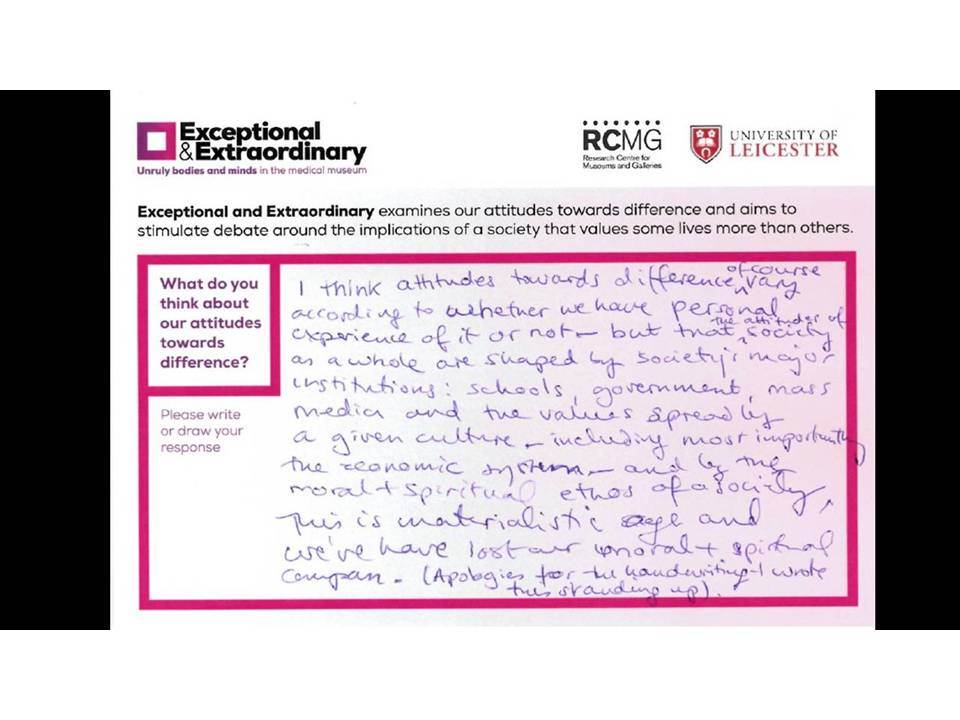 Exceptional
&Extraordinary
Unruly bodies and minds in the medical museum
RCMG
Research Centre for
Museums and Galleries
UNIVERSITY OF
LEICESTER
Exceptional and Extraordinary examines our attitudes towards difference and aims to
stimulate debate around the implications of a society that values some lives more than others.
What do you
think about
our attitudes
towards
difference?
Please write
or draw your
response
I think attitudes towards difference, of course vary
according to whether we have personal
experience of it or not - but that the attitudes of society
as a whole are shaped by society's major
institutions: schools, government, mass
media and the values spread by
a given culture - including most importantly
the economic system - and by the
moral + spiritual ethos of a society.
This is materialistic age and
we've have lost our moral + spiritual
compass - (Apologies for the handwriting - I wrote
this standing up).